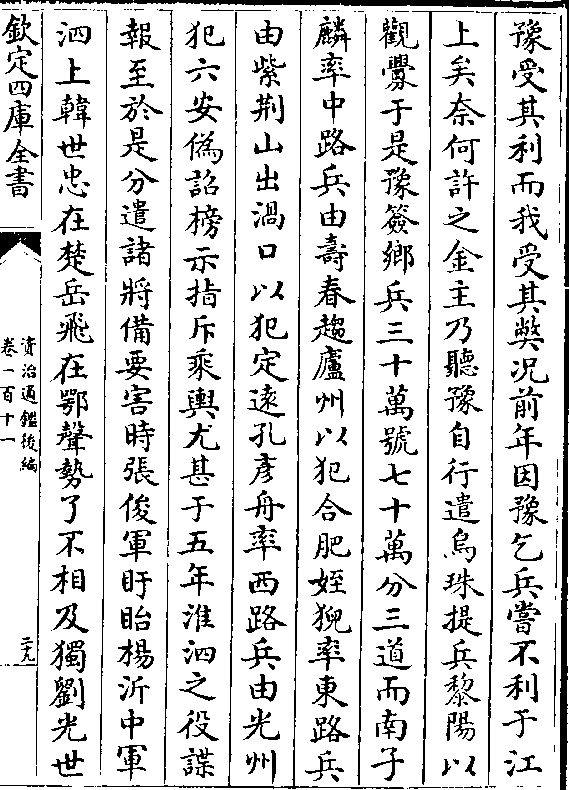 豫受其利而我受其弊况前年因豫乞兵嘗不利于江
上矣奈何許之金主乃聽豫自行遣烏珠提兵黎陽以
觀釁于是豫簽鄉兵三十萬號七十萬分三道而南子
麟率中路兵由壽春趨廬州以犯合肥姪猊率東路兵
由紫荆山出渦口以犯定逺孔彦舟率西路兵由光州
犯六安偽詔榜示指斥乘輿尤甚于五年淮泗之役諜
報至於是分遣諸將備要害時張俊軍盱眙楊沂中軍
泗上韓世忠在楚岳飛在鄂聲勢了不相及獨劉光世
欽定四庫全書
資治通鑑後編
卷一百十一
二九